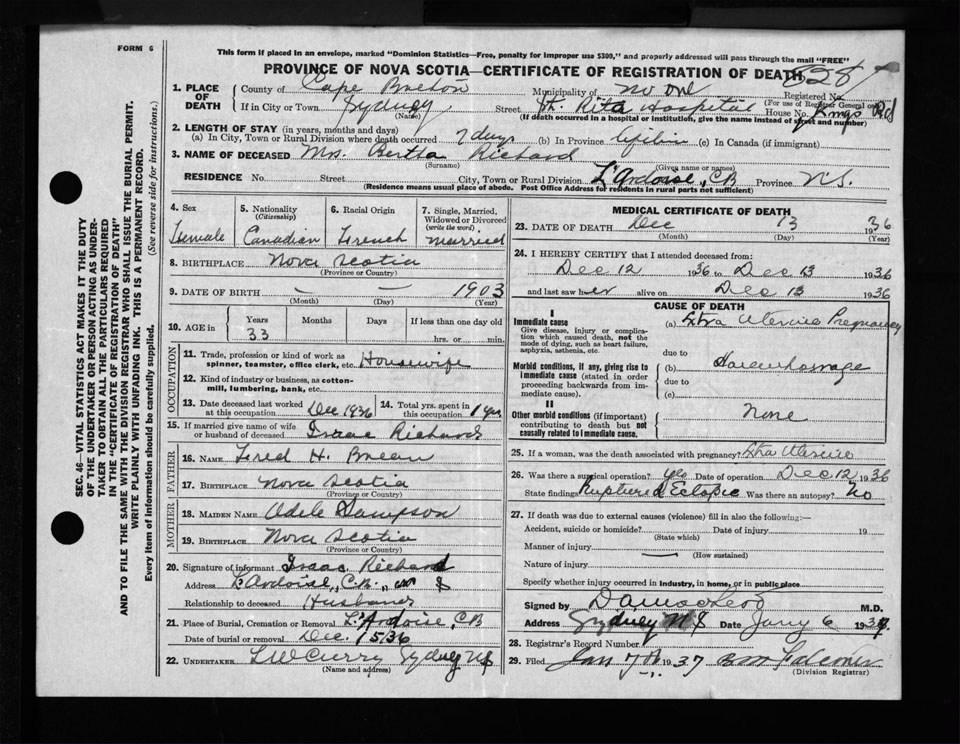 FORM 6
This form if placed in an envelope, marked "Dominion Statistics—Free, penalty for improper use $300," and properly addressed will pass through the mail "FREE"
PROVINCE OF NOVA SCOTIA—CERTIFICATE OF REGISTRATION OF DEATH
1. PLACE OF DEATH County of Cape Breton Municipality of No one Registered No.
(For use of Registrar General only)
If in City or Town Sydney Street St. Rita Hospital House No. Kings Rd
(Name) (If death occurred in a hospital or institution, give the name instead of street and number)
2. LENGTH OF STAY (in years, months and days)
(a) In City, Town or Rural Division where death occurred 7 days (b) In Province Lifetime (c) In Canada (if immigrant)
3. NAME OF DECEASED Mrs. Bertha Richard
(Surname) (Given name or names)
RESIDENCE No. Street City, Town or Rural Division L'Ardoise, CB Province N.S.
(Residence means usual place of abode. Post Office Address for residents in rural parts not sufficient)
4. Sex Female
5. Nationality (Citizenship) Canadian
6. Racial Origin French
7. Single, Married, Widowed or Divorced (write the word) married
8. BIRTHPLACE Nova Scotia
(Province or Country)
9. DATE OF BIRTH — — 1903
(Month) (Day) (Year)
10. AGE in Years Months Days If less than one day old
33 hrs. or min.
OCCUPATION
11. Trade, profession or kind of work as spinner, teamster, office clerk, etc. Housewife
12. Kind of industry or business, as cotton-mill, lumbering, bank, etc.
13. Date deceased last worked at this occupation Dec 1936
14. Total yrs. spent in this occupation 1 yr
15. If married give name of wife or husband of deceased Isaac Richard
FATHER
16. Name Fred H.
17. BIRTHPLACE Nova Scotia
(Province or Country)
MOTHER
18. MAIDEN NAME Adele Sampson
19. BIRTHPLACE Nova Scotia
(Province or Country)
20. Signature of informant Isaac Richard
Address L'Ardoise, C.B.
Relationship to deceased Husband
21. Place of Burial, Cremation or Removal L'Ardoise, CB
Date of burial or removal Dec. 15 36
22. UNDERTAKER L W Curry Sydney NS
(Name and address)
MEDICAL CERTIFICATE OF DEATH
23. DATE OF DEATH Dec 13 1936
(Month) (Day) (Year)
24. I HEREBY CERTIFY that I attended deceased from:
Dec 12 1936 to Dec 13 1936
and last saw her alive on Dec 13 1936
CAUSE OF DEATH
I
Immediate cause
Give disease, injury or complication which caused death, not the mode of dying, such as heart failure, asphyxia, asthenia, etc.
(a) Extra Uterine Pregnancy
due to
Morbid conditions, if any, giving rise to immediate cause (stated in order proceeding backwards from immediate cause).
(b) Haemhorrage
due to
(c)
II
Other morbid conditions (if important) contributing to death but not causally related to immediate cause.
None
25. If a woman, was the death associated with pregnancy? Extra Uterine
26. Was there a surgical operation? Yes Date of operation Dec 12 1936
State findings Ruptured Ectopic Was there an autopsy? No
27. If death was due to external causes (violence) fill in also the following:—
Accident, suicide or homicide? Date of injury 19
(State which)
Manner of injury
(How sustained)
Nature of injury
Specify whether injury occurred in industry, in home, or in public place
Signed by M.D.
Address Sydney NS Date Jany 6 1937
28. Registrar's Record Number
29. Filed Jan 7th 1937
(Division Registrar)
SEC. 46—VITAL STATISTICS ACT MAKES IT THE DUTY
OF THE UNDERTAKER OR PERSON ACTING AS UNDER-
TAKER TO OBTAIN ALL THE PARTICULARS REQUIRED
IN THE "CERTIFICATE OF REGISTRATION OF DEATH"
AND TO FILE THE SAME WITH THE DIVISION REGISTRAR WHO SHALL ISSUE THE BURIAL PERMIT.
WRITE PLAINLY WITH UNFADING INK. THIS IS A PERMANENT RECORD.
Every item of information should be carefully supplied. (See reverse side for instructions.)